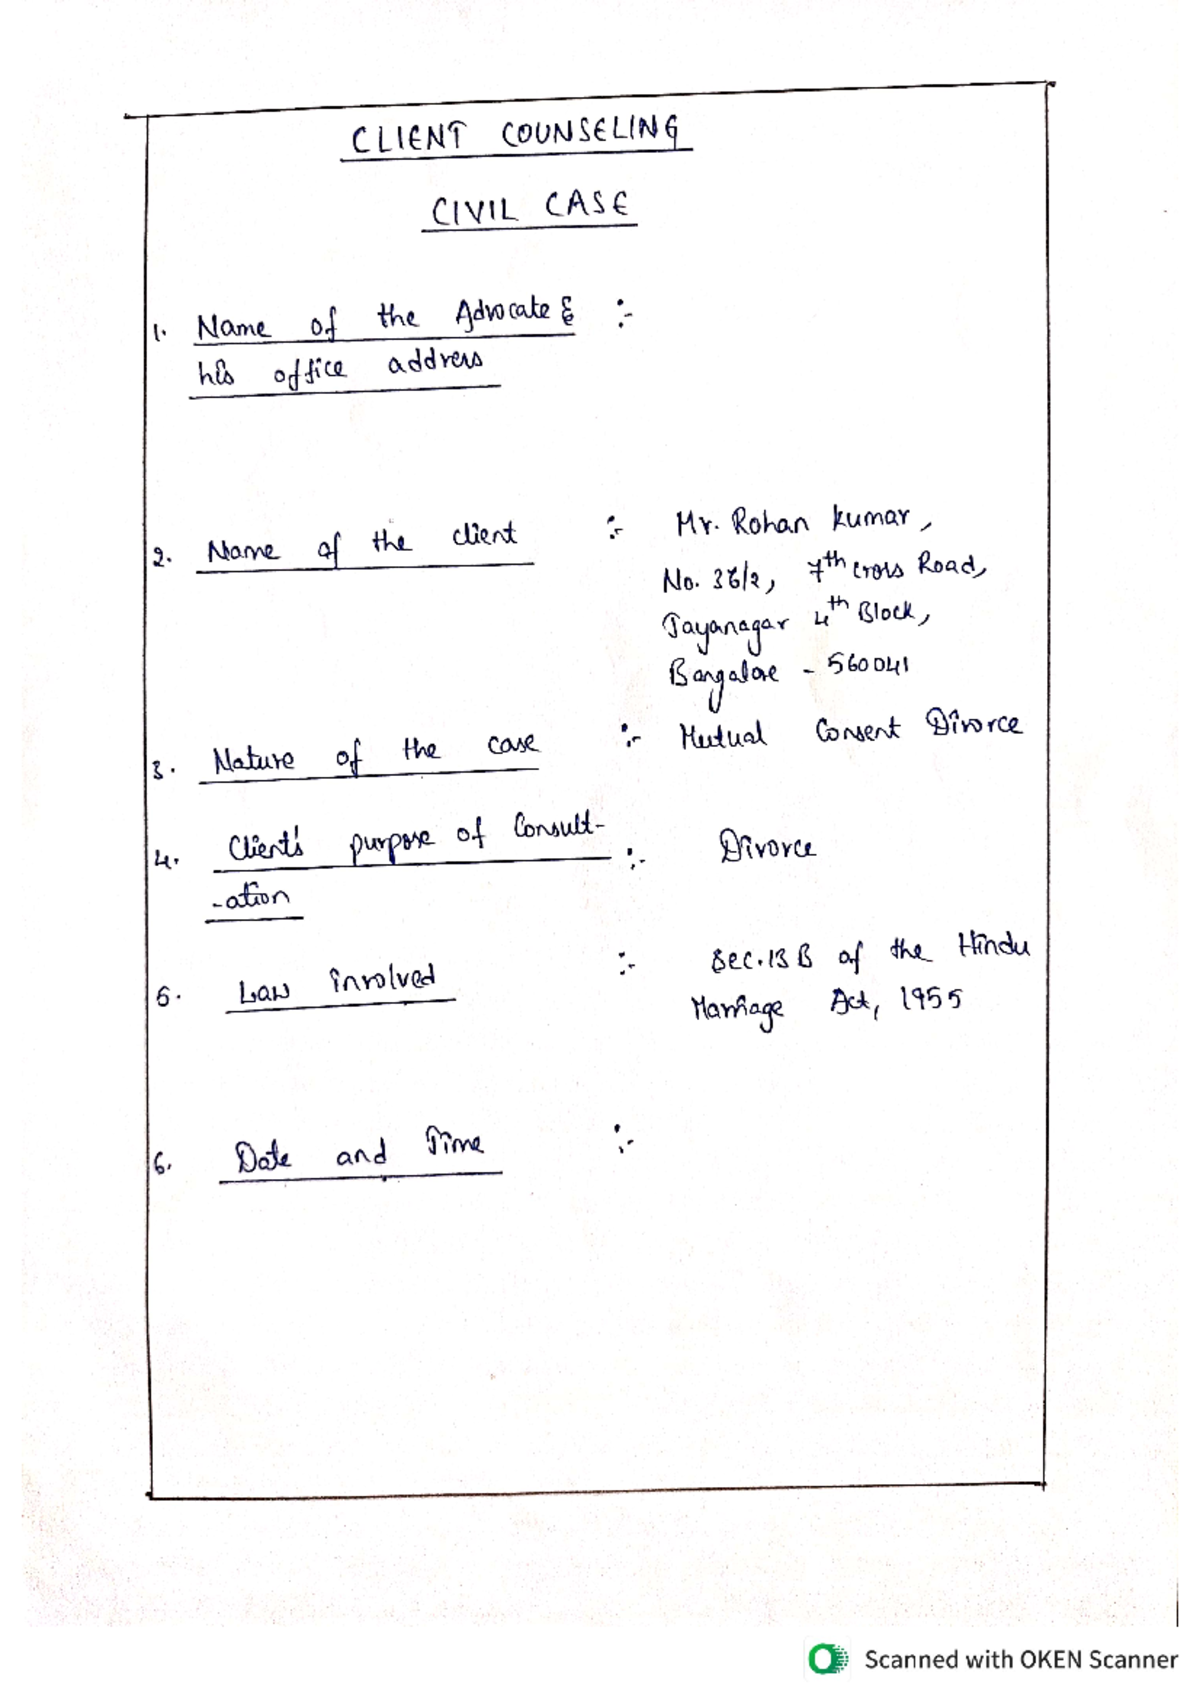 CLIENT COUNSELING
CIVIL CASE
1. Name of the Advocate & :-
his office address
2. Name of the client :- Mr. Rohan Kumar,
No. 36/2, 7th cross Road,
Jayanagar 4th Block,
Bangalore - 560041
3. Nature of the case :- Mutual Consent Divorce
4. Client's purpose of Consult- :- Divorce
-ation
5. Law involved :- Sec.13 B of the Hindu
Marriage Act, 1955
6. Date and Time :-
Scanned with OKEN Scanner